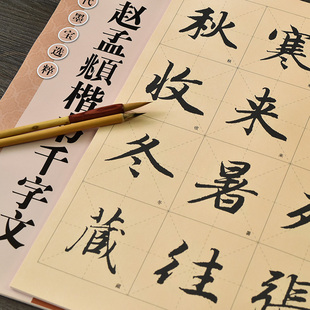 代墨宝选粹
赵孟頫楷书千字文
列張
寒来暑往
秋收冬藏